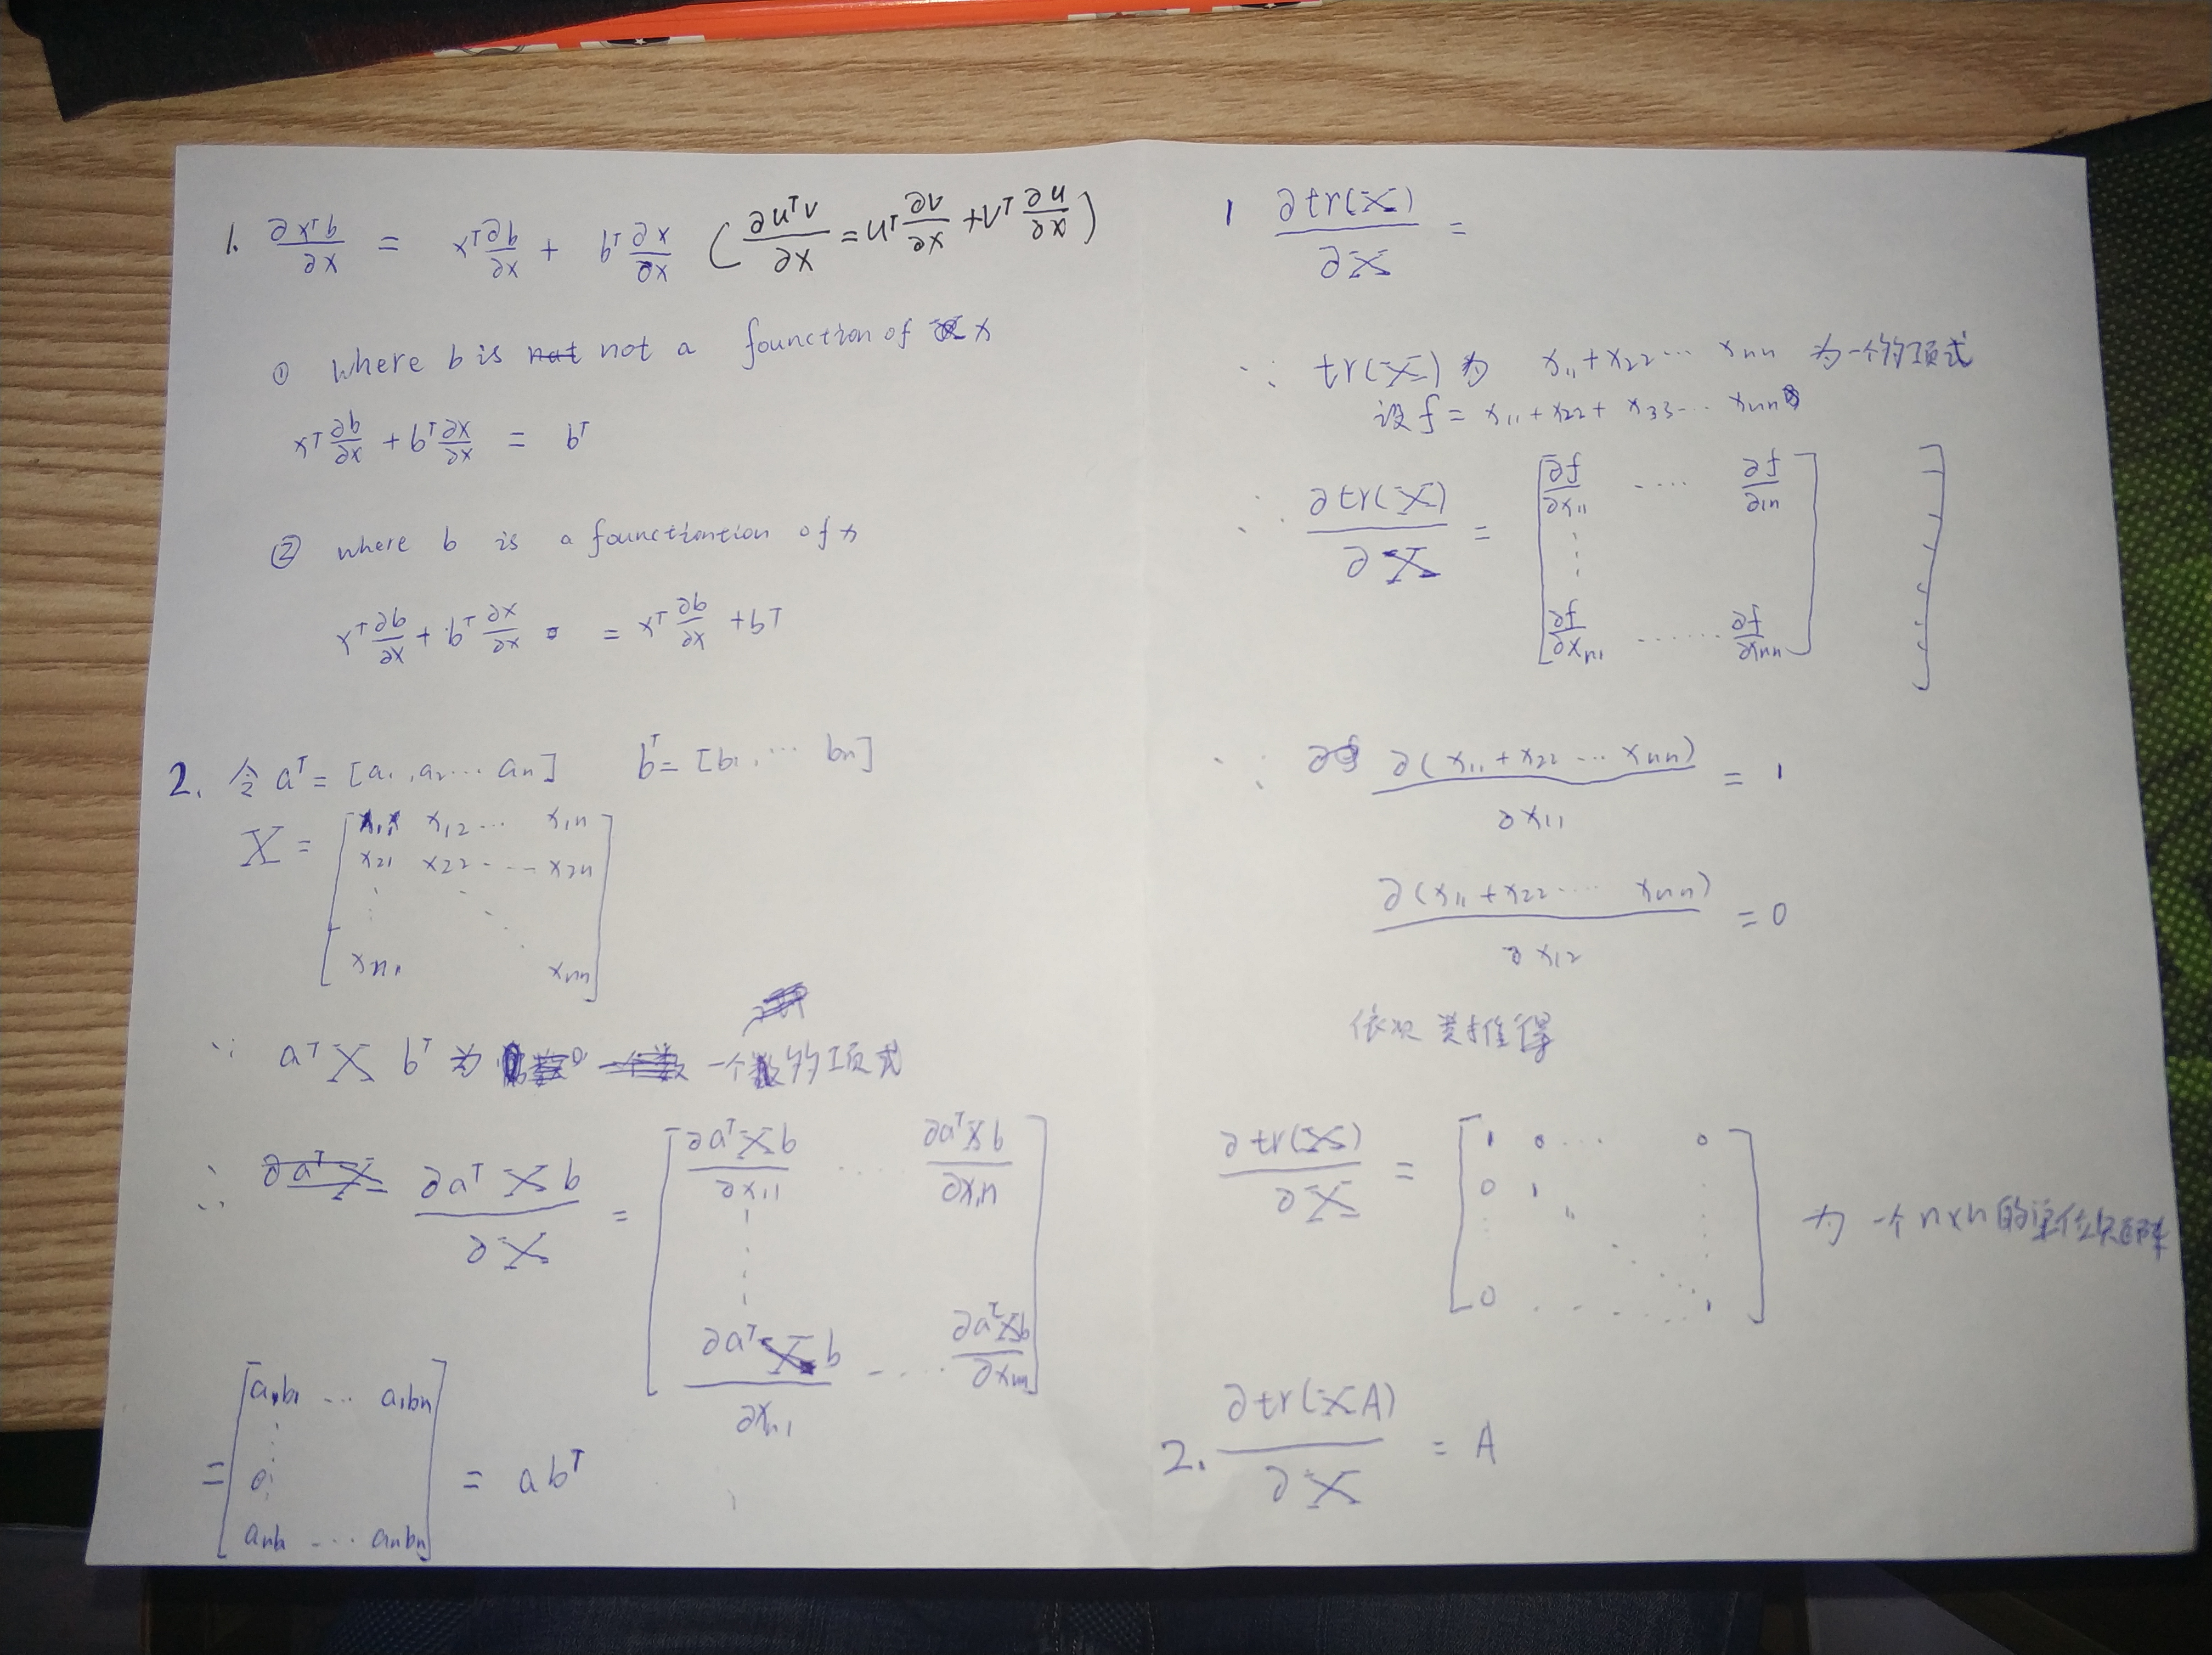 1. ∂xᵀb/∂x = xᵀ ∂b/∂x + bᵀ ∂x/∂x (∂uᵀv/∂x = uᵀ ∂v/∂x + vᵀ ∂u/∂x)
① where b is not a founction of x
xᵀ ∂b/∂x + bᵀ ∂x/∂x = bᵀ
② where b is a founctiontion of x
xᵀ ∂b/∂x + bᵀ ∂x/∂x = xᵀ ∂b/∂x + bᵀ
2. 令 aᵀ = [a₁, a₂ ... aₙ] bᵀ = [b₁, ... bₙ]
X = [ x₁₁ x₁₂ ... x₁ₙ
x₂₁ x₂₂ ... x₂ₙ
⋮ ⋱
xₙ₁ xₙₙ ]
∵ aᵀ X bᵀ 为 一个 的项式
∴ ∂aᵀXb/∂X = [ ∂aᵀXb/∂x₁₁ .... ∂aᵀXb/∂x₁ₙ
⋮
∂aᵀXb/∂xₙ₁ .... ∂aᵀXb/∂xₙₙ ]
= [ a₁b₁ ... a₁bₙ
⋮
aₙb₁ ... aₙbₙ ] = abᵀ
1 ∂tr(X)/∂X =
∵ tr(X) 为 x₁₁+x₂₂... xₙₙ 为一个的项式
设 f = x₁₁+x₂₂+ x₃₃... xₙₙ
∴ ∂tr(X)/∂X = [ ∂f/∂x₁₁ .... ∂f/∂₁ₙ
⋮
∂f/∂xₙ₁ ...... ∂f/∂xₙₙ ]
∵ ∂(x₁₁+x₂₂ ... xₙₙ)/∂x₁₁ = 1
∂(x₁₁+x₂₂ .... xₙₙ)/∂x₁₂ = 0
依次类推得
∂tr(X)/∂X = [ 1 0 ... 0
0 1
⋮ ⋱ ⋮
0 .... 1 ] 为一个n×n的单位矩阵
2. ∂tr(XA)/∂X = A